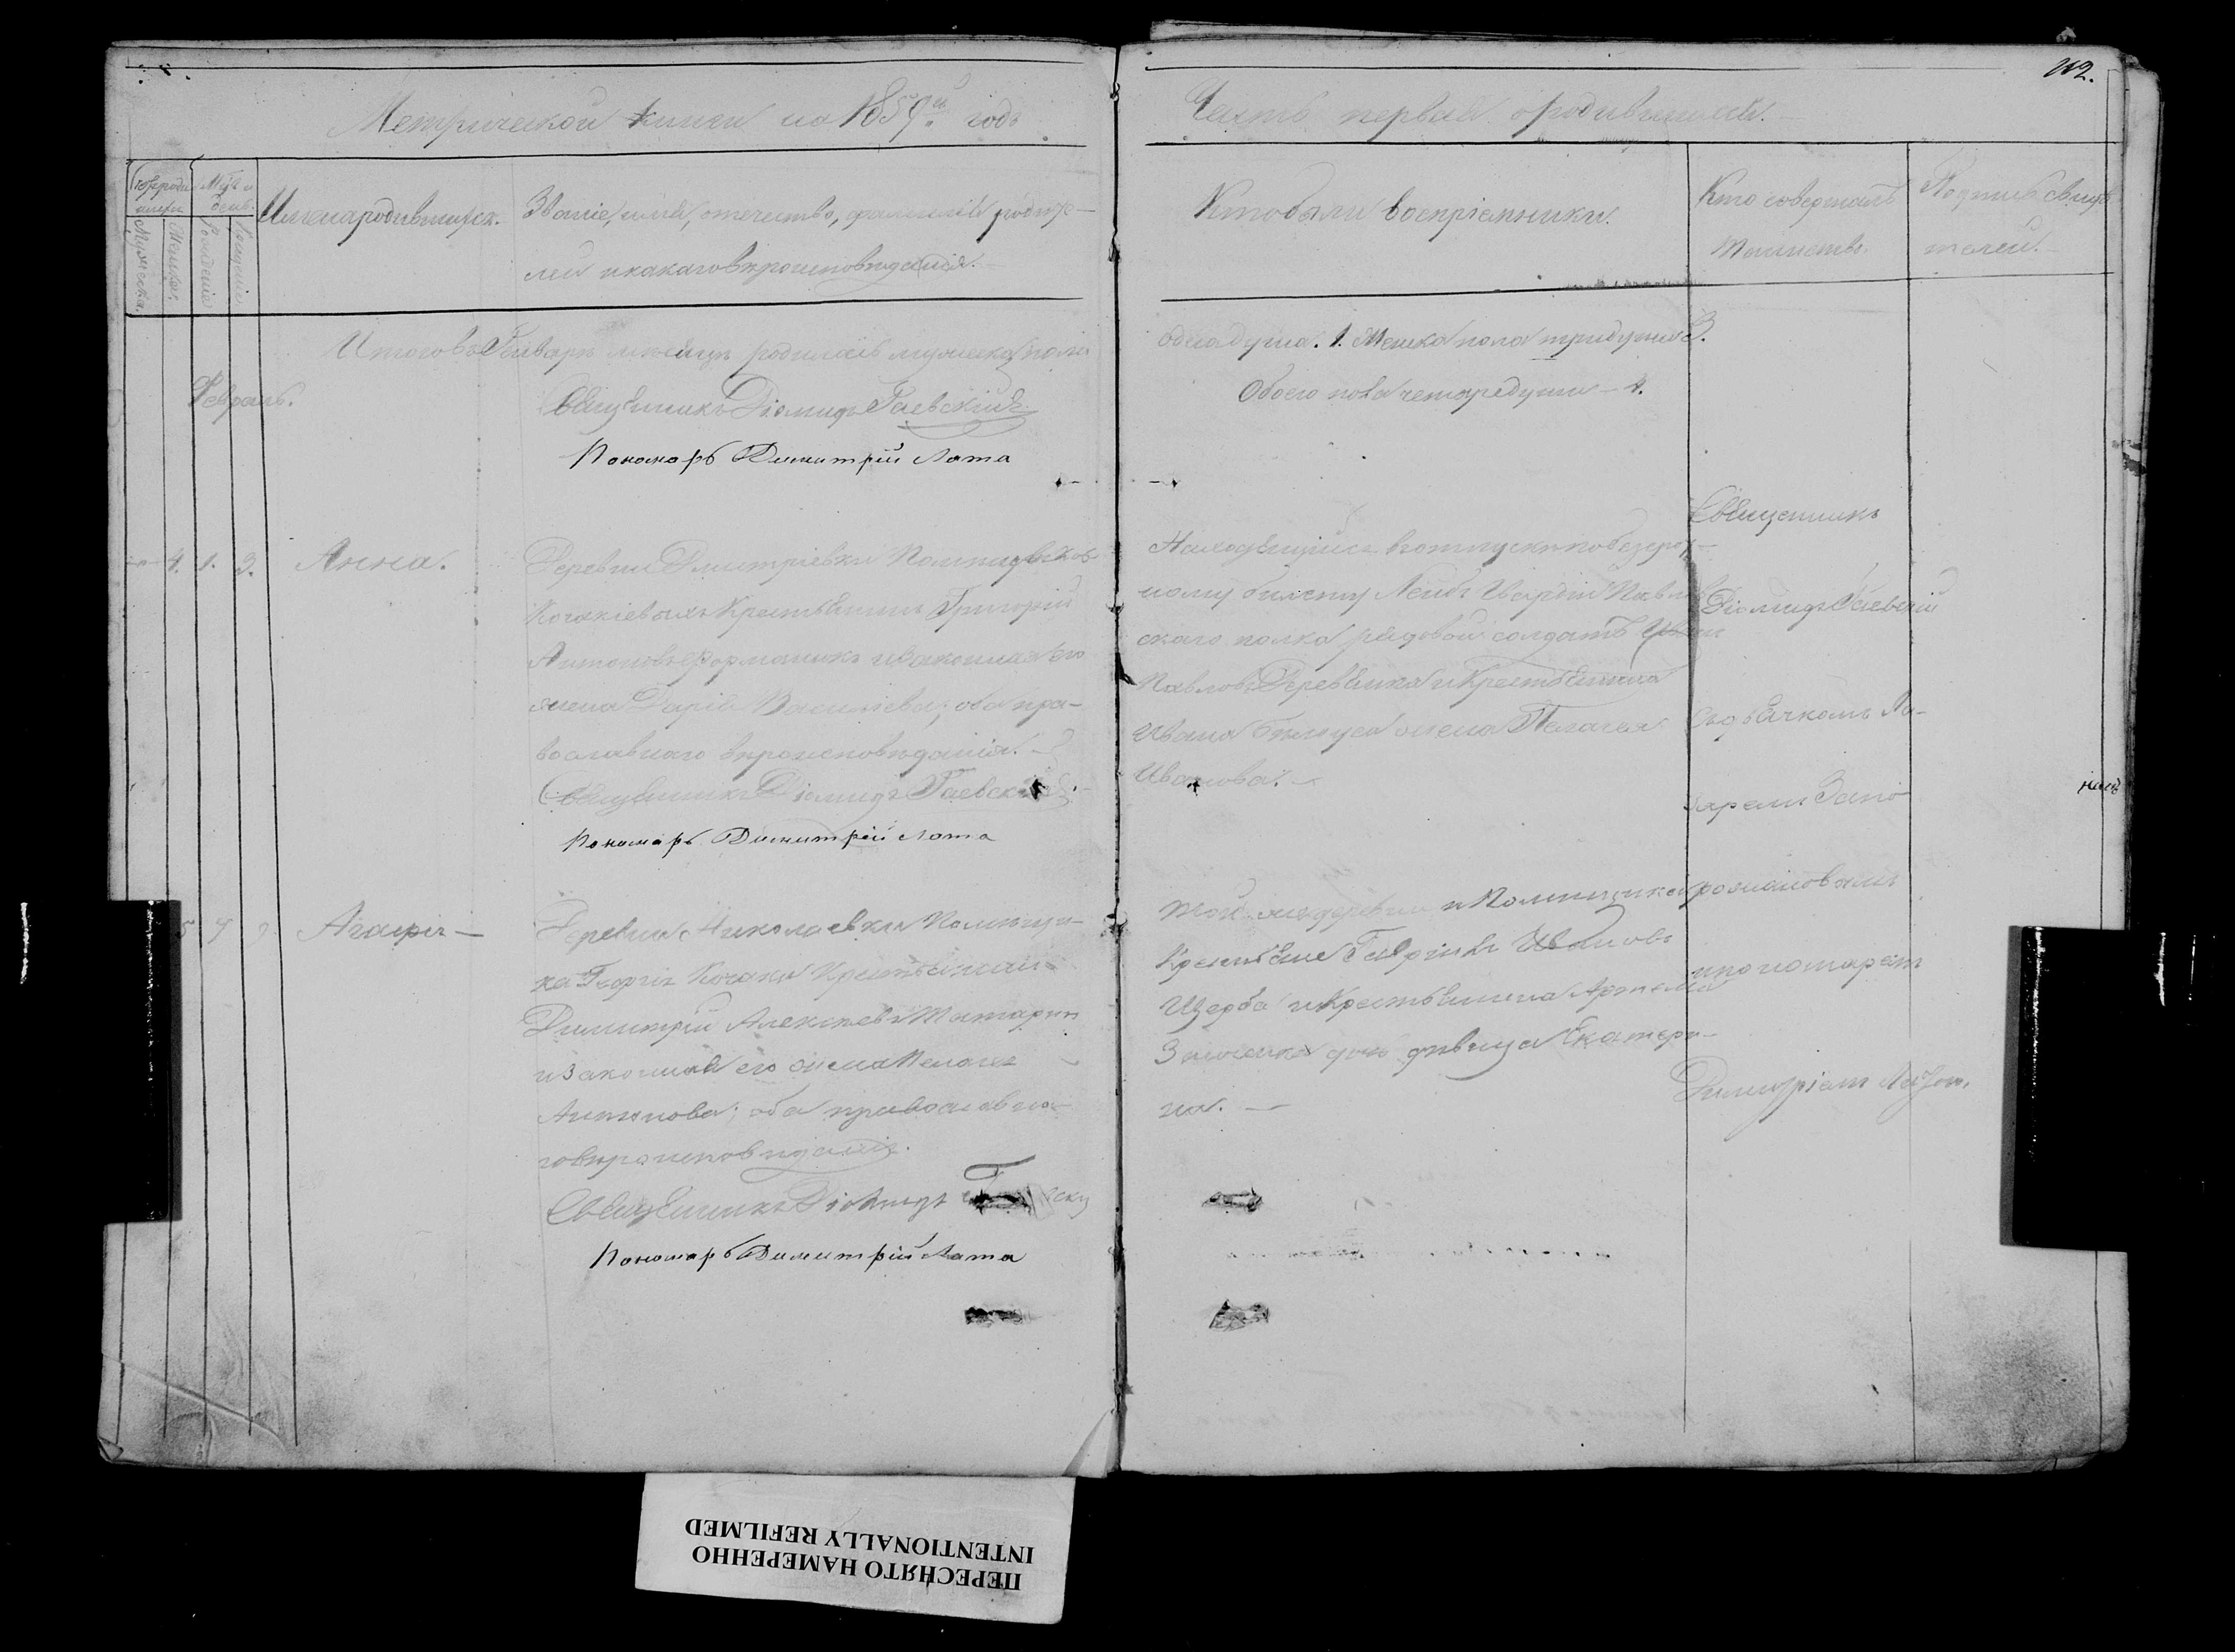 112.
Метрической книги на 1859й годъ
Часть первая о родившихся.
Мѣсяцъ и день.
Мужеска. Женска. Рожденія Крещенія
Имена родившихся.
Званіе, имя, отечество, фамилія родите-
лей и какаго вѣроисповѣданія.
Кто были воспріемники.
Кто совершалъ
таинство.
Подпись свидѣ-
телей.
Итого въ Генварѣ мѣсяцѣ родилось мужеска пола
одна душа. 1. Женска пола три души 3.
Обоего пола четыре души - 4.
Февраль.
Священникъ Діомидъ Гаевскій
Пономарь Димитрій Лата
4. 1. 3. Анна.
Деревни Дмитріевки Помѣщиковъ
Кочакіевыхъ Крестьянинъ Григорій
Антоновъ Форманикъ и законная его
жена Дарія Василіева; оба пра-
вославнаго вѣроисповѣданія.
Священникъ Діомидъ Гаевскій
Пономарь Димитрій Лата
Находящійся в отпуску по безсроч-
ному билету Лейбъ Гвардіи Павлов
скаго полка рядовой солдатъ Иванъ
Павловъ и Крестьянина
Ивана жена Пелагея
Иванова.
Священникъ
Діомидъ Гаевскій
съ дьячкомъ Ла-
заремъ Запо
рожановымъ
и пономаремъ
Димитріемъ Латою.
5 7 9 Агафія —
Деревни Николаевки Помѣщи-
ка Георгія Кочаки Крестьянинъ
Димитрій Алексѣевъ Татаринъ
и законная его жена Пелагея
Антонова; оба православна-
го вѣроисповѣданія.
Священникъ Діомидъ Гаевскій
Пономарь Димитрій Лата
Той же деревни и Помѣщика
Крестьяне Гавріилъ Ивановъ
Щерба и Крестьянина Артема
дочь дѣвица Екатери-
на. —
ПЕРЕСНЯТО НАМЕРЕННО
INTENTIONALLY REFILMED